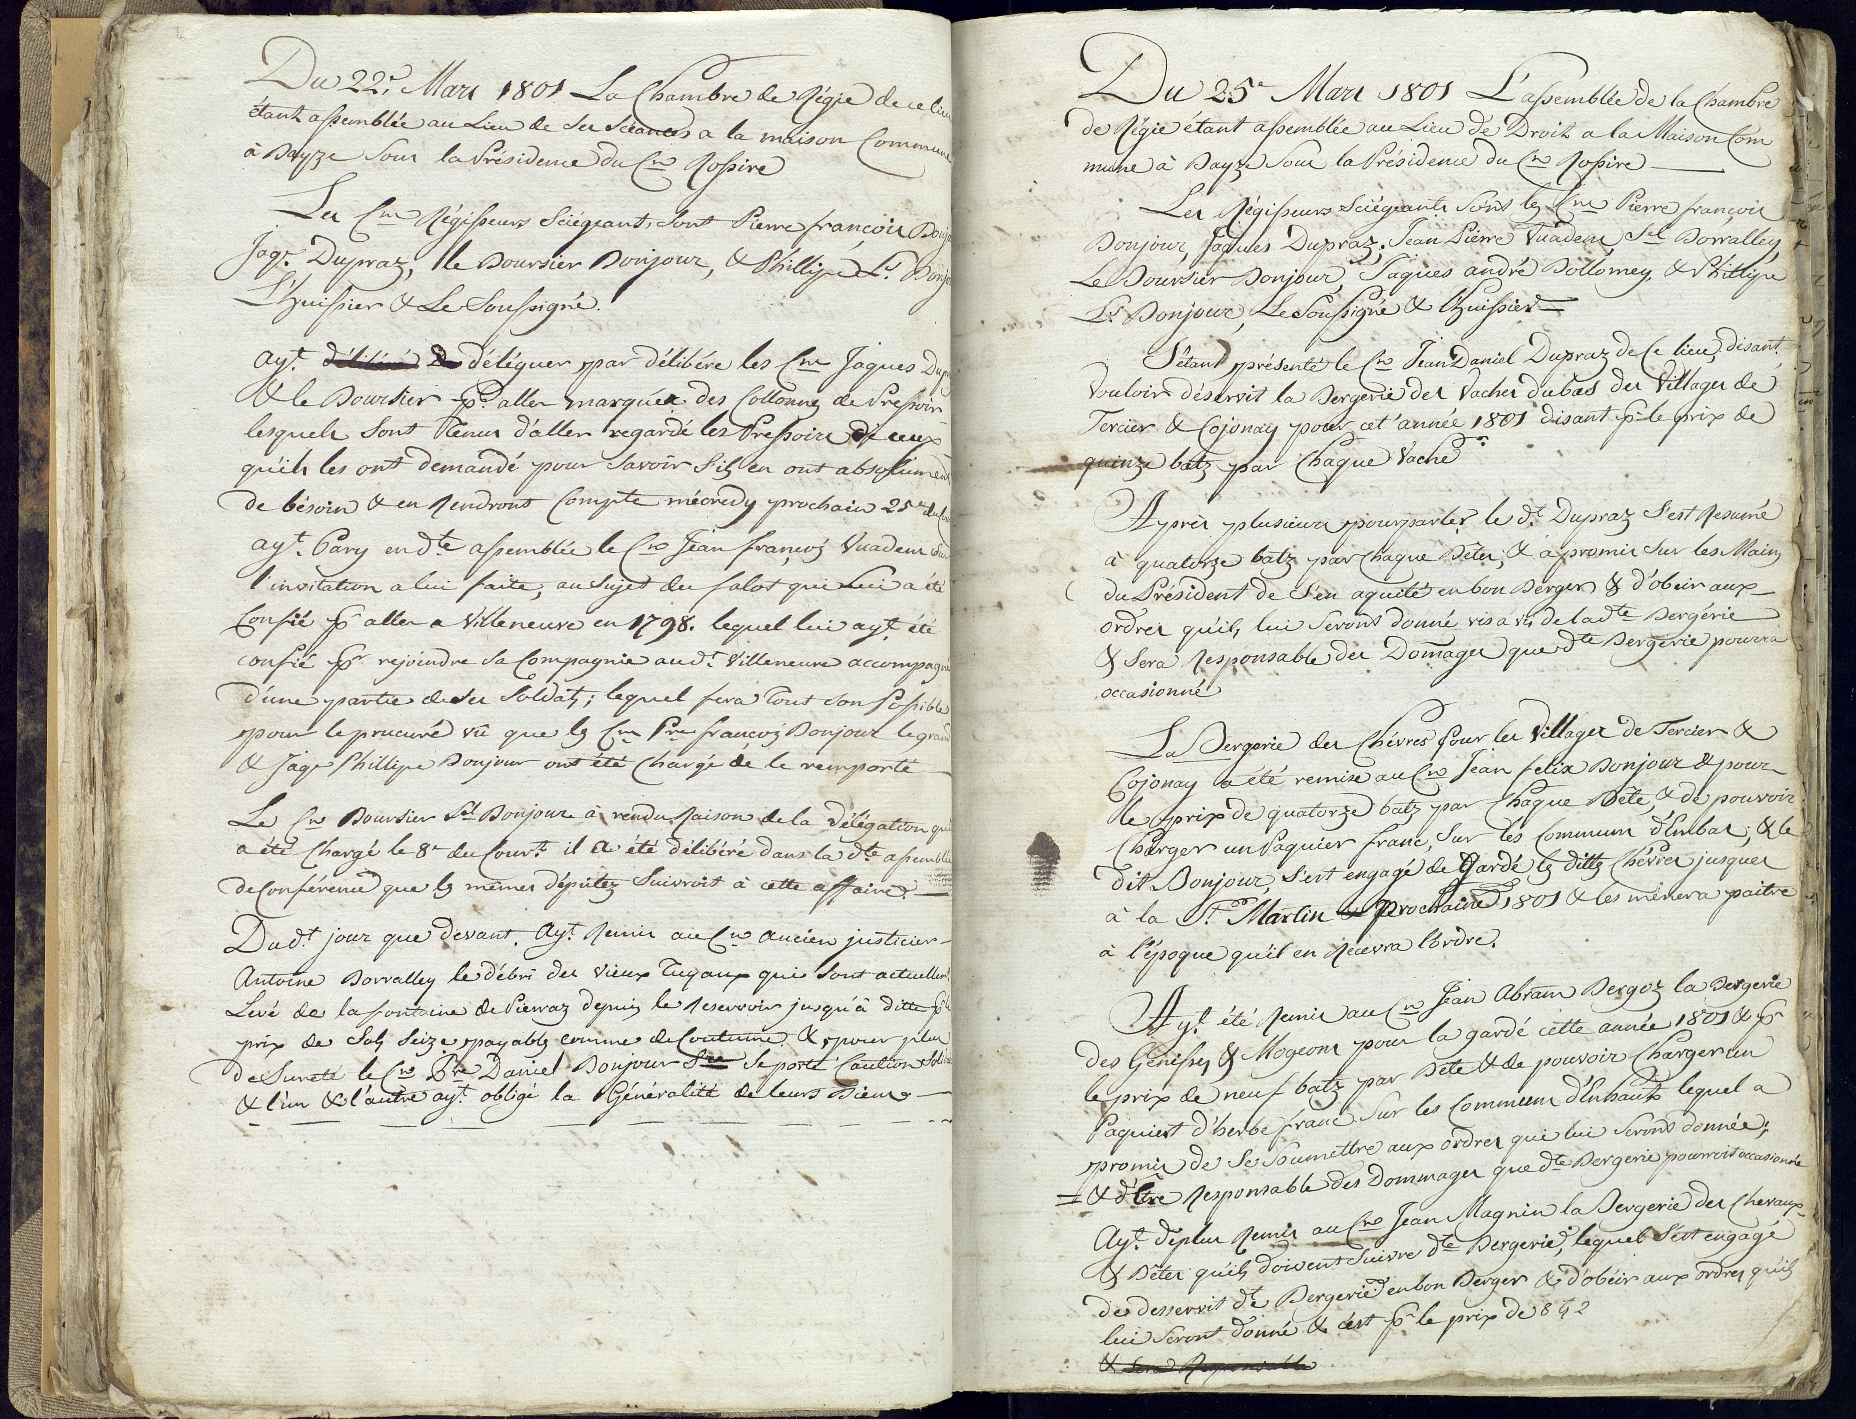 Du 22.e Mars 1801 La Chambre de Régie de ce lieu
étant assemblée au Lieu de ses Séances a la maison Commune
à Bayze sous la Présidence du Cn Rossire
Les Cns Régisseurs Sciégeant, sont Pierre françois Bonjour
Jaqs. Dupraz, le Boursier Bonjour, & Phillipe Ls. Bonjour
L'huissier & Le Soussigné.
ayt. délibéré & déléguer par délibére les Cns Jaques Dupraz
& le Boursier pr. aller marquér des Collonnes de Pressoir
lesquels sont Tenus d'aller regardé les Pressoirs de ceux
qu'ils les ont demandé pour savoir s'ils en ont absolument
de bésoin & en Rendront Compte mécredy prochain 25e du Crt
ayt. Pary en dte assemblée le Cn Jean françois Vuadens
l'invitation a lui faite, au Sujet du falot qui Lui a été
Confié pr aller a Villeneuve en 1798. lequel lui ayt. été
confié pr rejoindre sa Compagnie au dt Villeneuve accompagné
d'une partie de ses Soldats; lequel fera Tout son Possible
pour le prucuré vû que les Cns Pre francois Bonjour le grand
& Jaqs Phillipe Bonjour ont été Chargé de le remporté
Le Cn Boursier Sl Bonjour à rendu Raison de la Délégation qu'il
a été Chargé le 8e du Courrt. il a été délibéré dans la dte assemblée
de Conférence que les mêmes députez Suivroit à cette affaire.
Du dt. jour que devant. Ayt. Remis au Cn ancien justicier
Antoine Borralley le débri des vieux Tuyaux qui sont actuellemt.
Levé de la fontaine de Pierraz depuis le Reservoir jusqu'à ditte pr le
prix de Sols Seize payable comme de Coutume, & pour plus
de Sureté le Cn Pre Daniel Bonjour Sre Se porte Caution Solid.
& l'un & l'autre ayt. obligé la Généralité de leurs Biens
Du 25e Mars 1801 L'assemblée de la Chambre
de Régie étant assemblée au Lieu de Droit a la Maison Com
mune à Bayze sous la Présidence du Cn Rossire
Les Régisseurs Sciégeants sont les Cns Pierre françois
Bonjour, Jaques Dupraz, Jean Pierre Vuadens, Sl Borralley,
Le Boursier Bonjour, Jaques andré Bollomey, & Phillipe
Ls Bonjour, Le Soussigné & L'huissier
S'étant présenté le Cn Jean Daniel Dupraz de Ce lieu, disant
vouloir déservit la Bergerie des Vaches du bas des Villages de
Tercier & Cojonay pour cet'année 1801 disant pr le prix de
quinze batz par Chaque Vache
Après plusieurs pourparler le dt. Dupraz S'est Resumé
à quatorze batz par Chaque Bêtes, & a promis sur les Mains
du Président de S'en aquité en bon Berger & d'obeir aux
ordres qu'ils lui seront donné vis a vis de la dte Bergérie
& Sera Responsable des Domages que dte Bergerie pourra
occasionné
La Bergerie des Chévres pour les Villages de Tercier &
Cojonay a été remise au Cn Jean felix Bonjour & pour
le prix de quatorze batz par Chaque Bête, & de pouvoir
Charger un Paquier franc, sur les Commun d'Enbas, & le
dit Bonjour, s'est engagé de Gardé les dittes Chévres jusques
à la St. Martin & Prochaine 1801 & les mènera paitre
à l'époque qu'il en Recevra l'ordre.
Ayt. été Remis au Cn Jean Abram Bergoz la Bergerie
des Genisses & Mogeons pour la gardé cette année 1801 & pr
le prix de neuf batz par Bête & de pouvoir Charger un
Paquiert d'herbe franc sur les Commun d'Enhaut, lequel a
promis de Se Soumettre aux ordres que lui seront donnée;
& d'être Responsable des Dommages que dte Bergerie pourroit occasionnée
Ayt. deplus Remis au Cn Jean Magnin la Bergerie des Chevaux
& Bêtes qu'ils doivent Suivre dte Bergerie, lequel s'est engagé
de desservit dte Bergerie en bon Berger & d'obéir aux ordres qu'ils
lui seront donné & c'est pr le prix de 8 ½
& sera Responsable